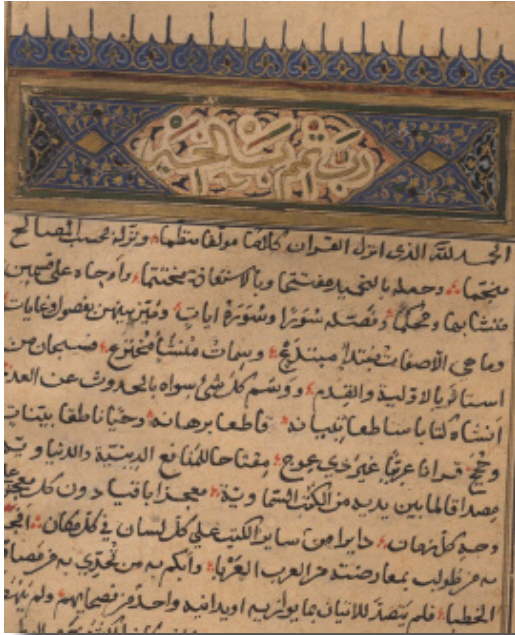 رب تمم بالخير
الحمد لله الذى انزل القران كلاما مولفا منظما ونزله بحسب المصالح
منجما وجعله بالتحميد مفتتحا وبالاستعاذة مختتما واوحاه على قسمين
متشابها ومحكما وفصله سورا وسوره ايات وميز بينهن بفصول وغايات
وما هي الا صفات مبتدا مبتدع وسمات منشا مخترع فسبحان من
استاثر بالاولية والقدم ووسم كل شئ سواه بالحدوث عن العدم
انشاه كتابا ساطعا تبيانه قاطعا برهانه وحيا ناطقا ببينات
وحجج قرانا عربيا غير ذي عوج مفتاحا للمنافع الدينية والدنيا و
مصداقا لما بين يديه من الكتب السماوية معجزا باقيا دون كل معجز على
وجه كل زمان دايرا من ساير الكتب على كل لسان في كل مكان افحم
به من طولب بمعارضته من العرب العربا وابكم به من تحدي به من مصاقع
الخطبا فلم يتصد للاتيان بما يوازيه او يدانيه واحد من فصحايهم ولم ينهض